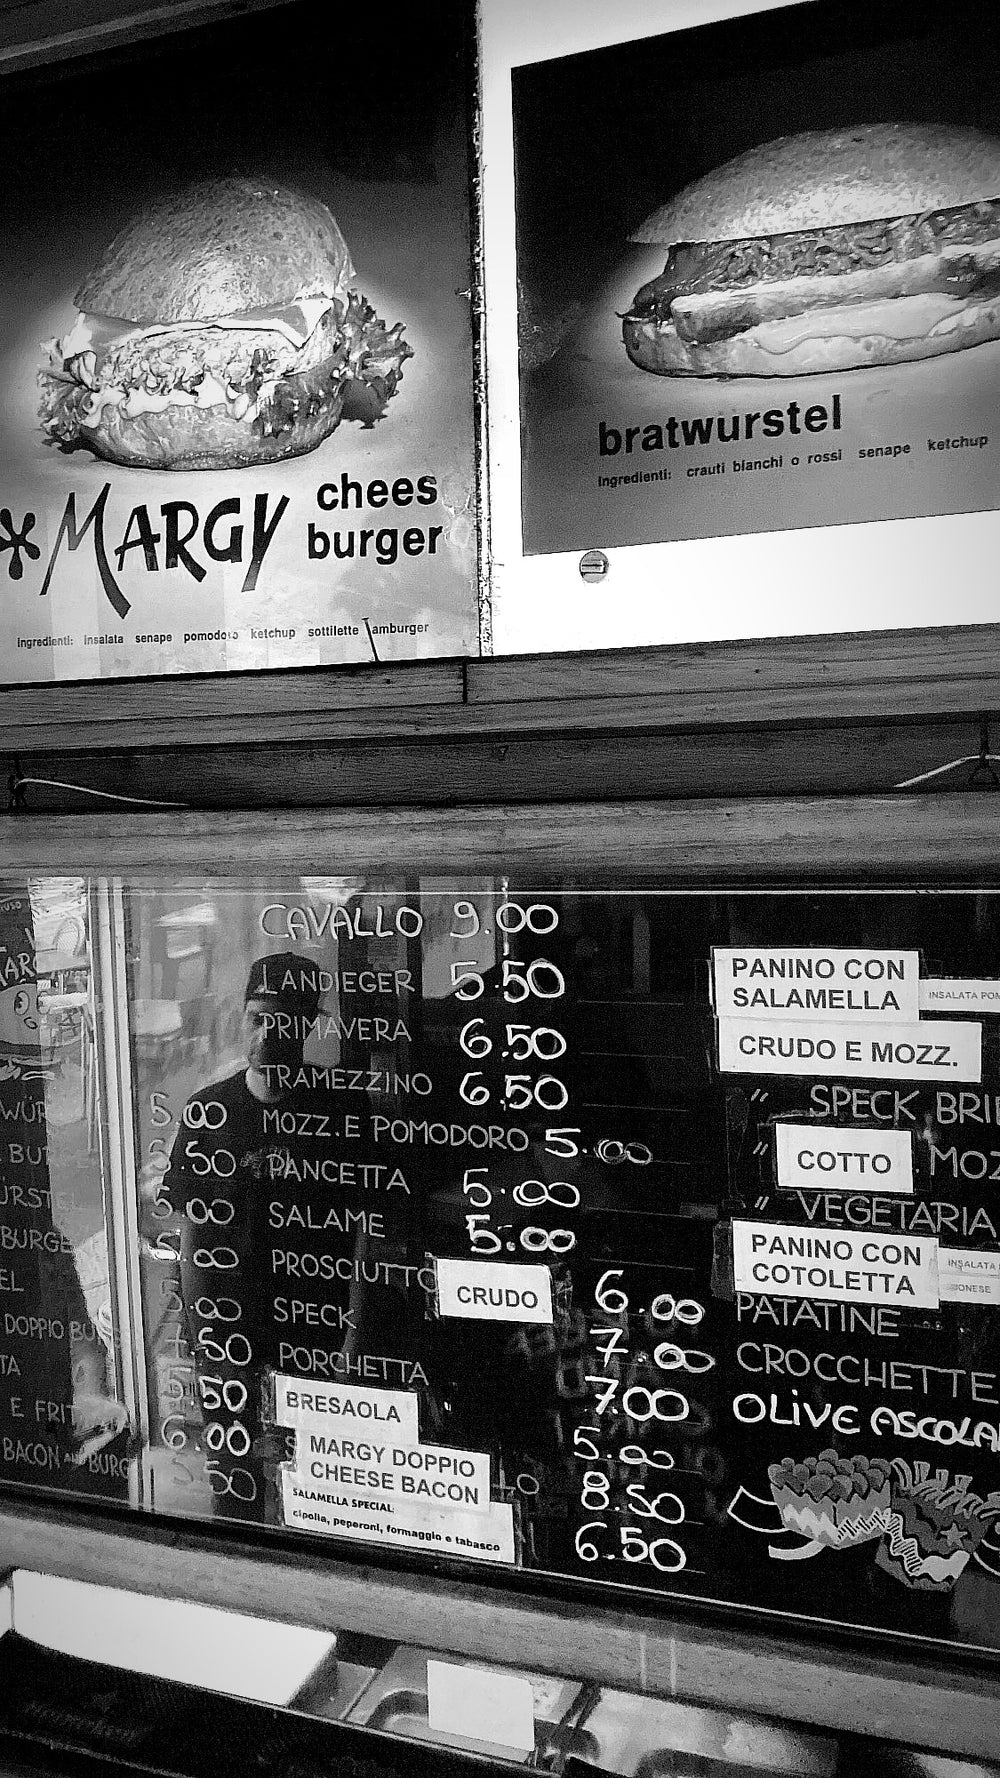 MARGY
chees
burger
Ingredienti: insalata senape pomodoro ketchup sottilette amburger
bratwurstel
Ingredienti: crauti bianchi o rossi senape ketchup
CAVALLO 9.00
LANDIEGER 5.50
PRIMAVERA 6.50
TRAMEZZINO 6.50
5.00 MOZZ. E POMODORO 5.00
5.50 PANCETTA 5.00
5.00 SALAME 5.00
5.00 PROSCIUTTO CRUDO 6.00
5.00 SPECK 7.00
.50 PORCHETTA 7.00
5.50 BRESAOLA 5.00
6.00 MARGY DOPPIO
CHEESE BACON 8.50
5.50 SALAMELLA SPECIAL:
cipolla, peperoni, formaggio e tabasco
6.50
PANINO CON
SALAMELLA
INSALATA POM
CRUDO E MOZZ.
" SPECK BRI
" COTTO MOZ
" VEGETARIA
PANINO CON
COTOLETTA
INSALATA
PATATINE
CROCCHETTE
OLIVE ASCOLA
WÜR
BU
ÜRST
BURGE
EL
DOPPIO BU
TA
E FRIT
BACON BURG